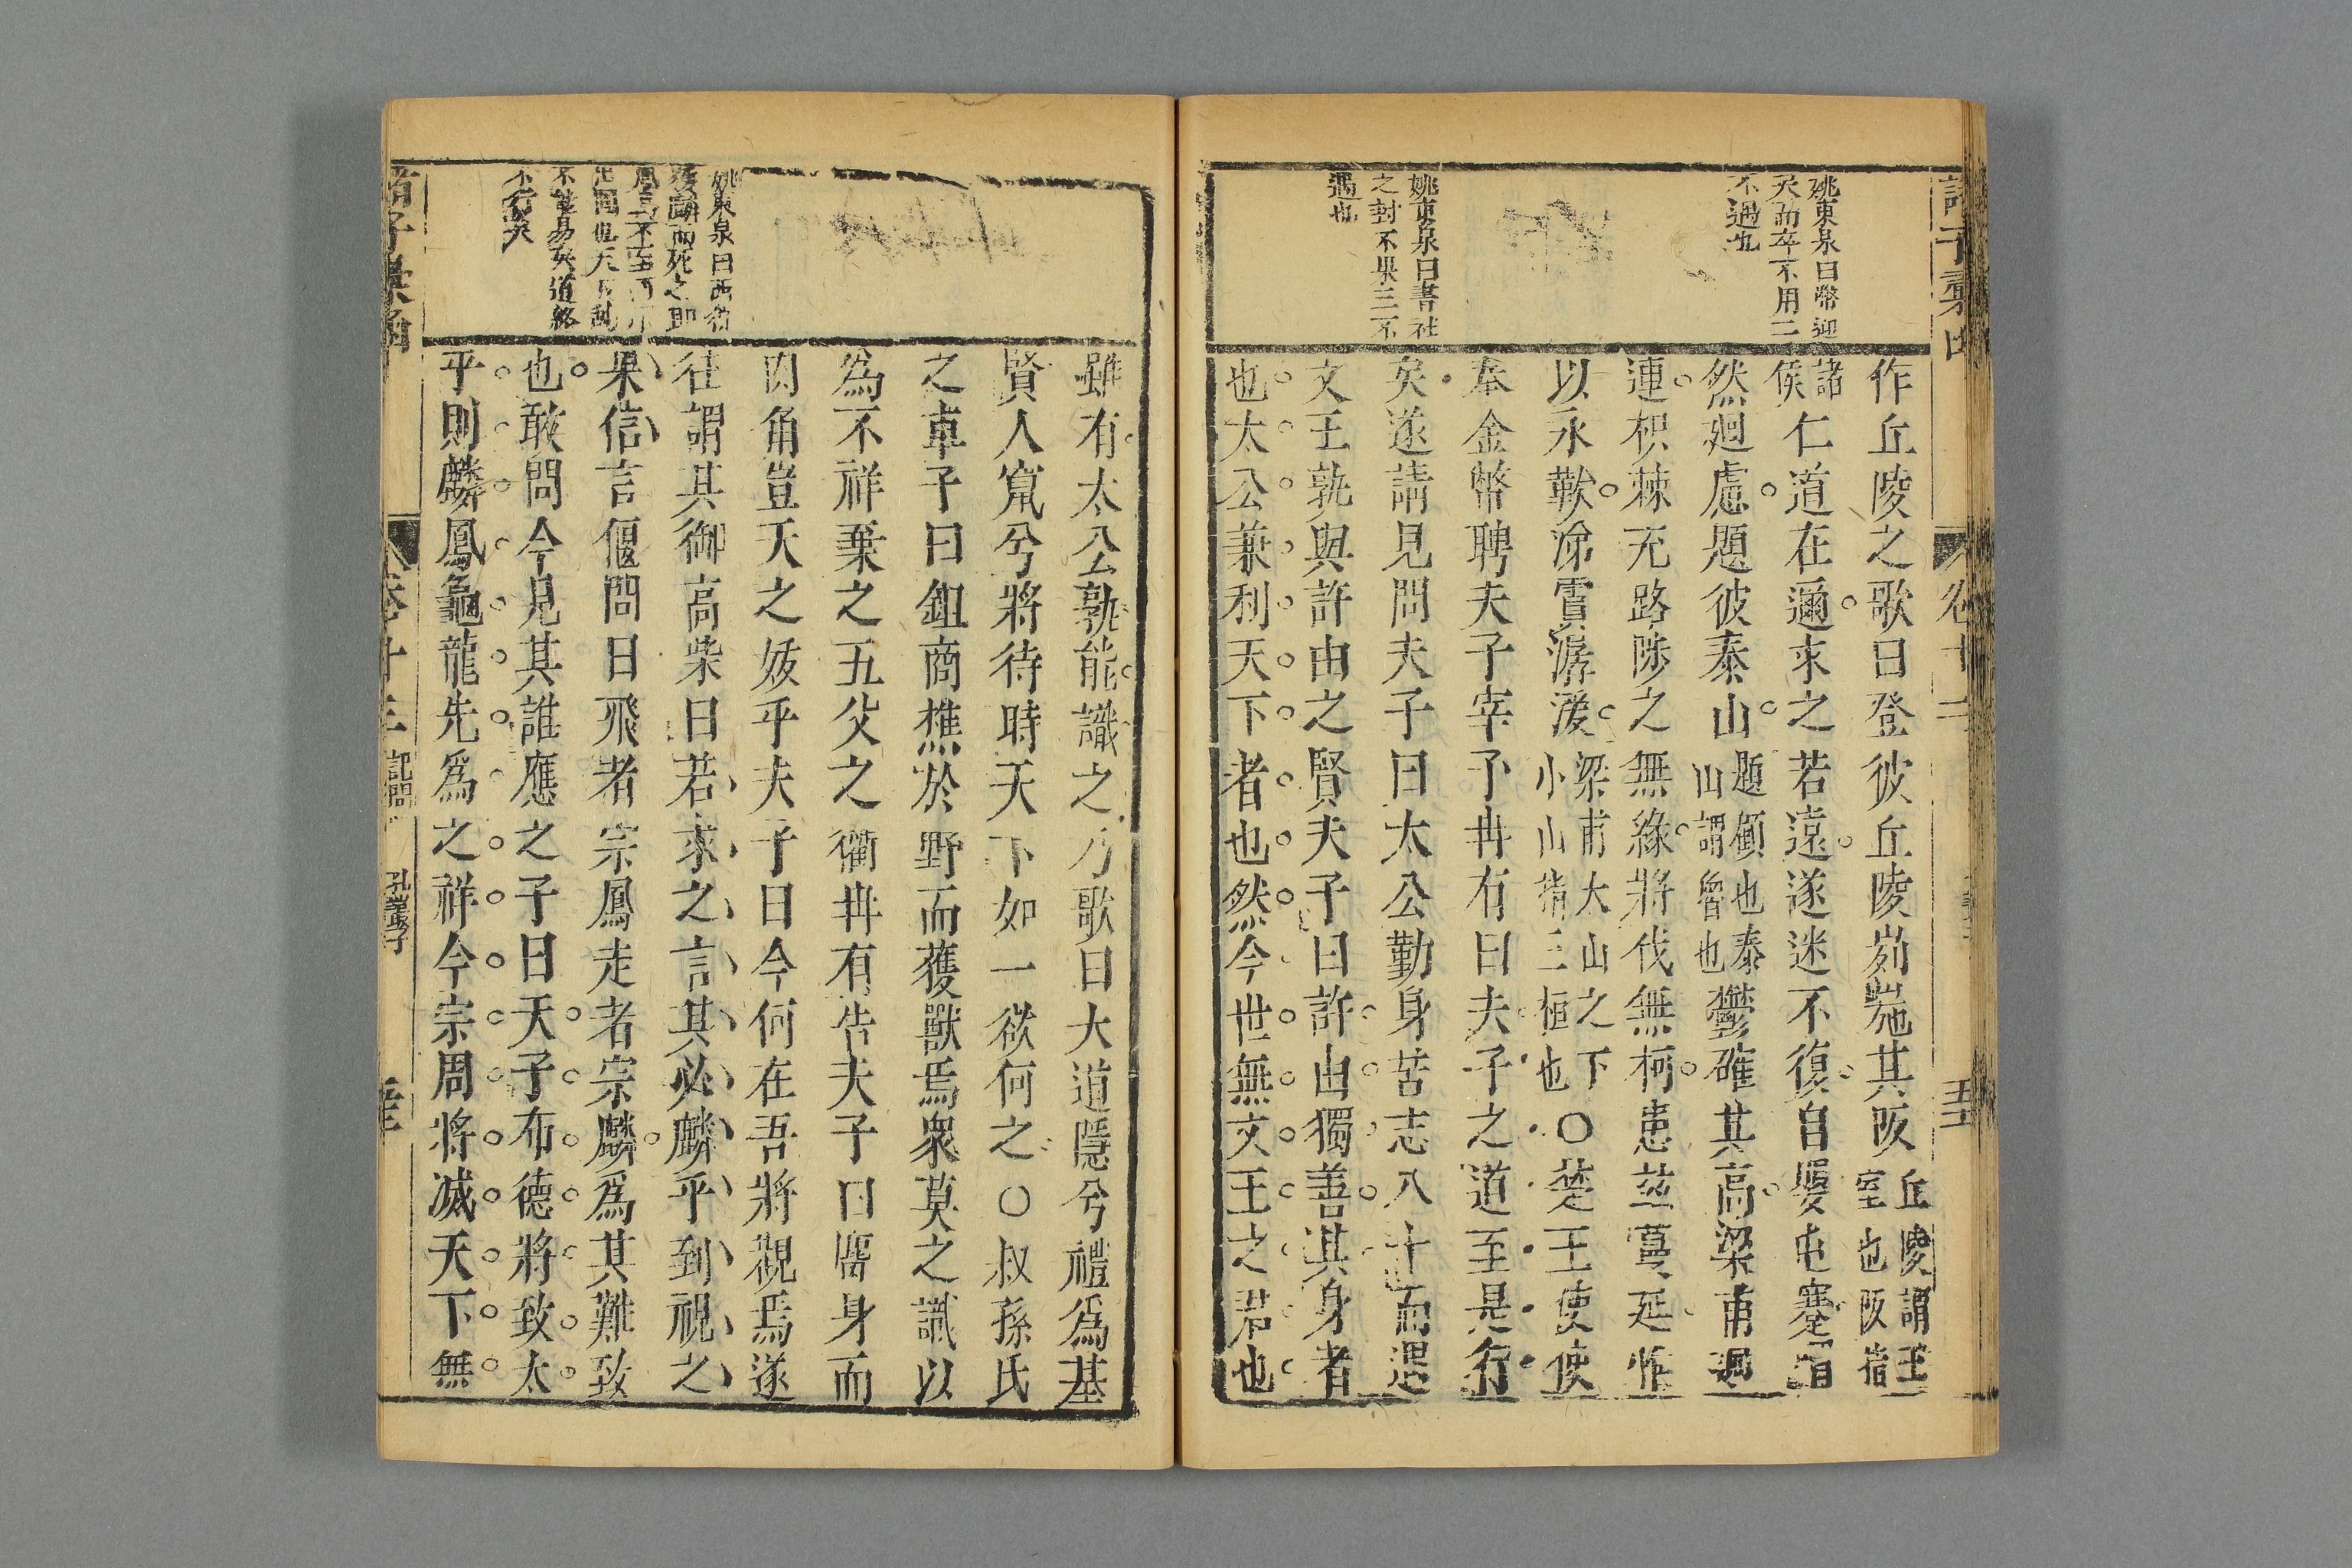 姚東泉曰幣迎
矣而卒不用二
不遇也
姚東泉曰書社
之封不果三不
遇也
作丘陵之歌曰登彼丘陵峛崺其阪丘陵謂王室也阪指
諸侯仁道在邇求之若遠遂迷不復自嬰屯蹇喟
然廻慮題彼泰山題顧也泰山謂魯也鬱確其高梁甫廻
連枳棘充路陟之無緣將伐無柯患茲蔓延惟
以永歎涕霣潺湲梁甫大山之下小山指三桓也○楚王使使
奉金幣聘夫子宰予冉有曰夫子之道至是行
矣遂請見問夫子曰太公勤身苦志八十而遇
文王孰與許由之賢夫子曰許由獨善其身者
也太公兼利天下者也然今世無文王之君也
姚東泉曰西狩
獲麟而死之即
不能易矣道終
不行矣
雖有太公孰能識之乃歌曰大道隱兮禮為基
賢人竄兮將待時天下如一欲何之○叔孫氏
之車子曰鉏商樵於野而獲獸焉衆莫之識以
為不祥棄之五父之衢冉有告夫子曰麕身而
肉角豈天之妖乎夫子曰今何在吾將觀焉遂
往謂其御高柴曰若求之言其必麟乎到視之
果信言偃問曰飛者宗鳳走者宗麟為其難致
也敢問今見其誰應之子曰天子布德將致太
平則麟鳳龜龍先為之祥今宗周將滅天下無
卷十三 記問 孔叢子